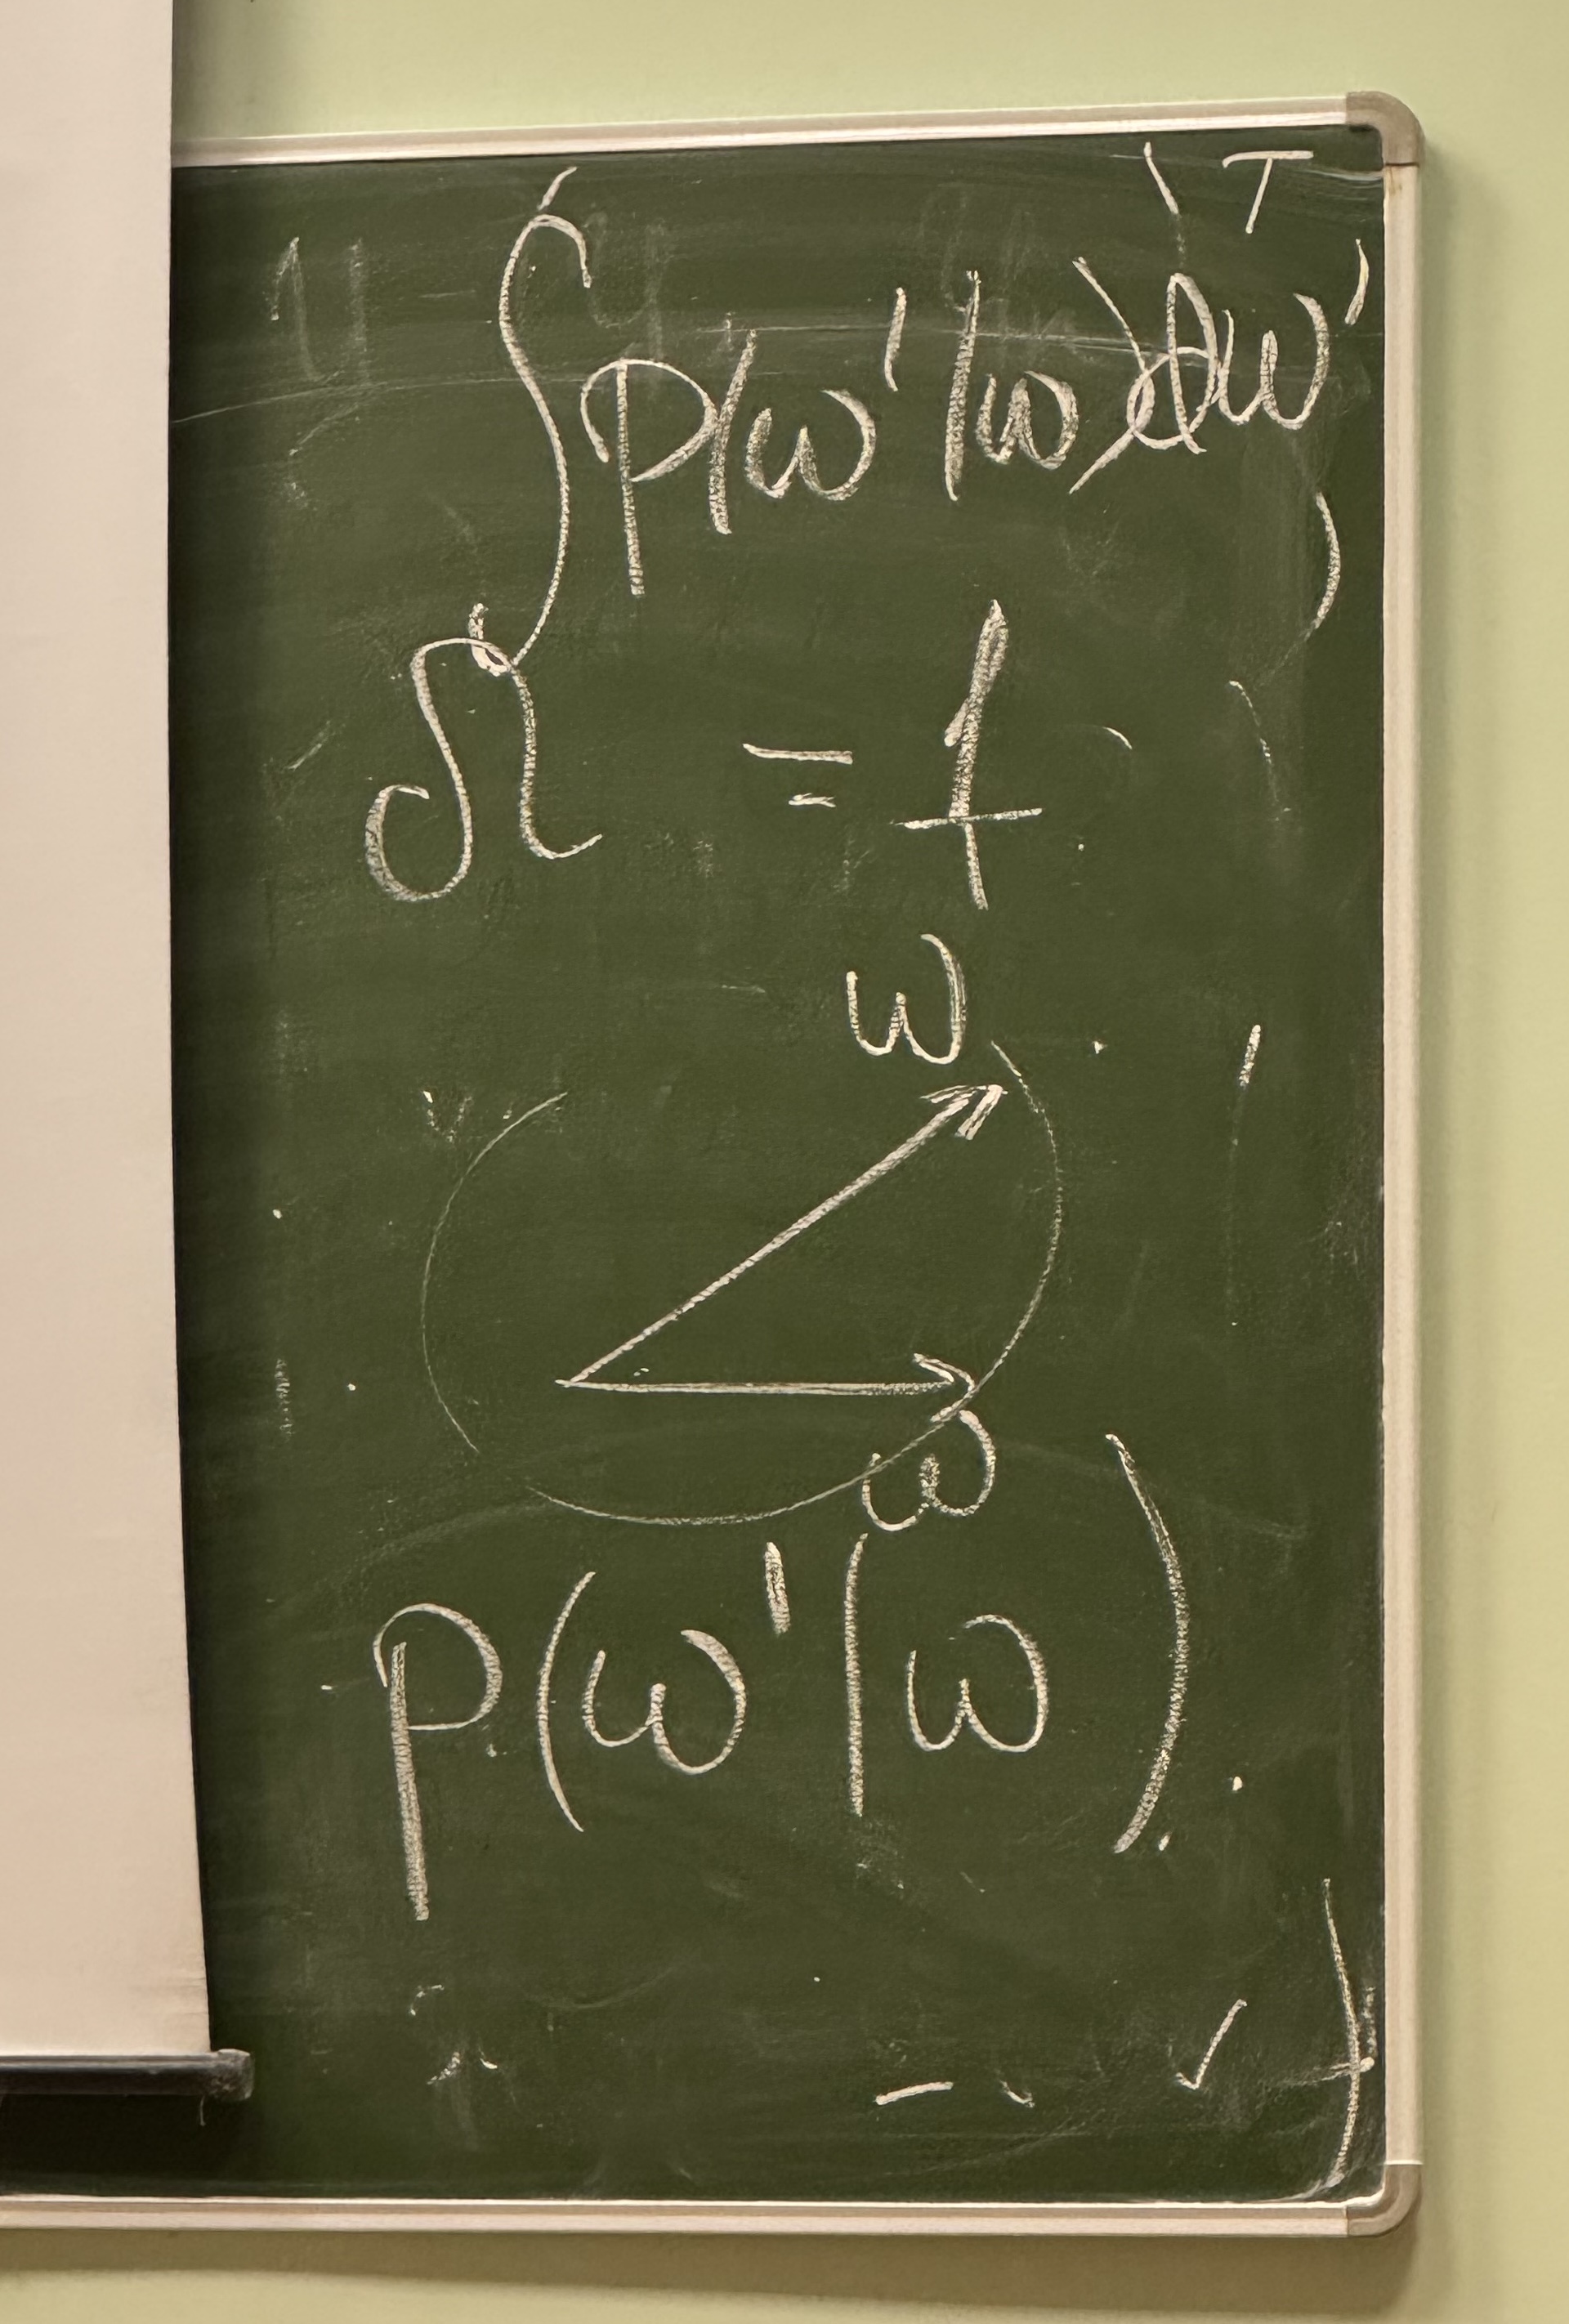 ∫ p(ω'|ω) dω'
Ω = 1
ω
ω
p(ω'|ω)